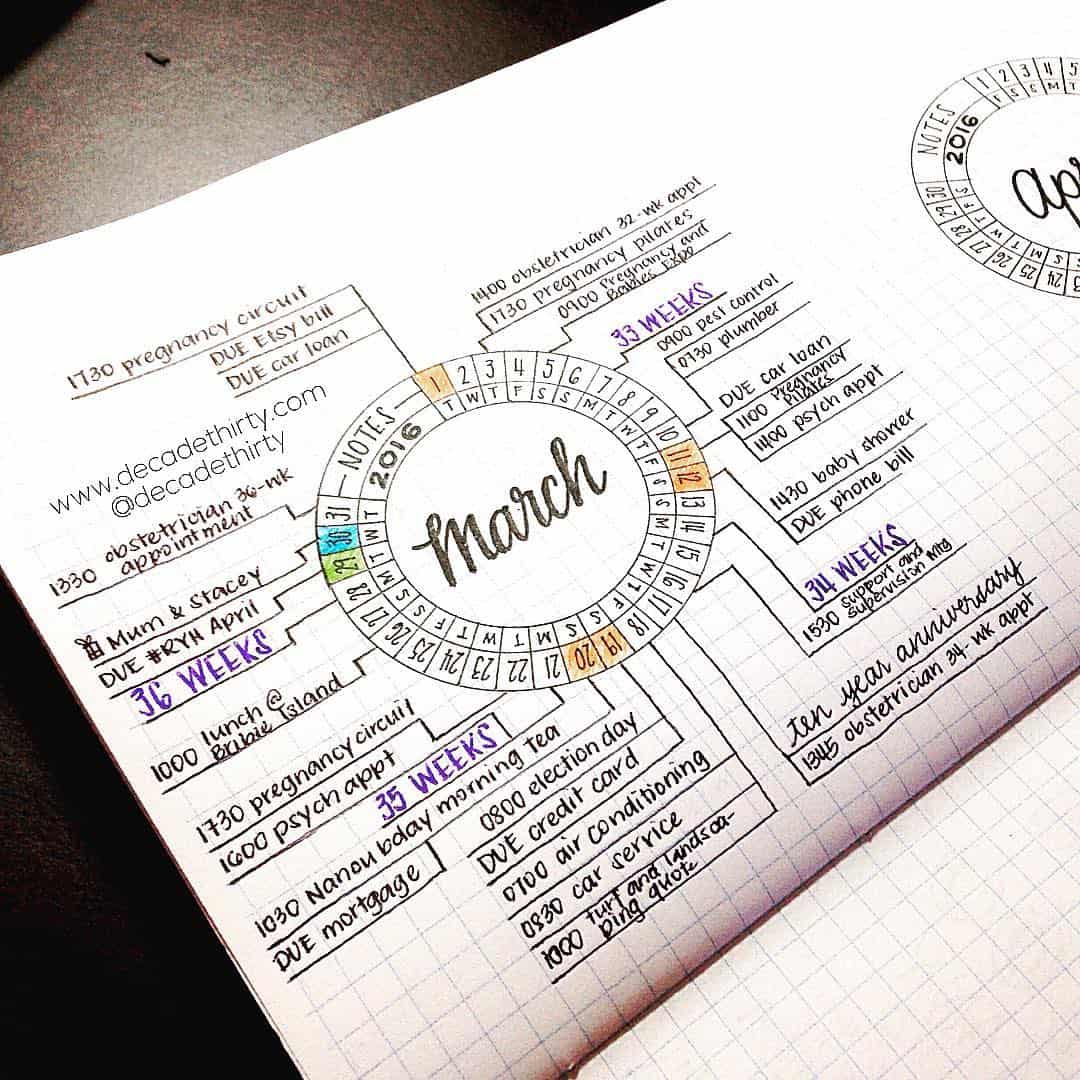 1730 pregnancy circuit
DUE Etsy bill
DUE car loan
www.decadethirty.com
@decadethirty
1400 obstetrician 32-wk appt
1730 pregnancy pilates
0900 Pregnancy and
Babies Expo
33 WEEKS
0900 pest control
0730 plumber
DUE car loan
1100 Pregnancy
Pilates
1400 psych appt
1430 baby shower
DUE phone bill
34 WEEKS
1530 support and
supervision mtg
ten year anniversary
1345 obstetrician 34-wk appt
NOTES 1 2 3 4 5 6 7 8 9 10 11 12 13 14 15 16 17 18 19 20 21 22 23 24 25 26 27 28 29 30 31
2016 T W T F S S M T W T F S S M T W T F S S M T W T F S S M T W T
march
obstetrician 36-wk
1330 appointment
Mum & Stacey
DUE #RYH April
36 WEEKS
1000 lunch @
Bribie Island
1730 pregnancy circuit
1600 psych appt
35 WEEKS
1030 Nanou bday morning tea
DUE mortgage
0800 election day
DUE credit card
0700 air conditioning
0830 car service
1000 turf and landsca-
ping quote
NOTES 1 2 3 4 5
2016 F S S M T
ap
23 24 25 26 27 28 29 30
S M T W T F S